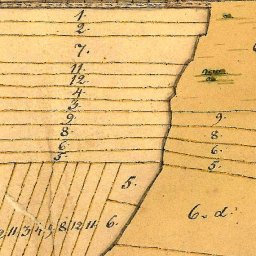 1.
2.
7.
11.
12.
4.
3.
9.
8.
6.
5
9.
8.
6.
5.
5.
6.
6. d.
2 11 3 4 9 8 12 11